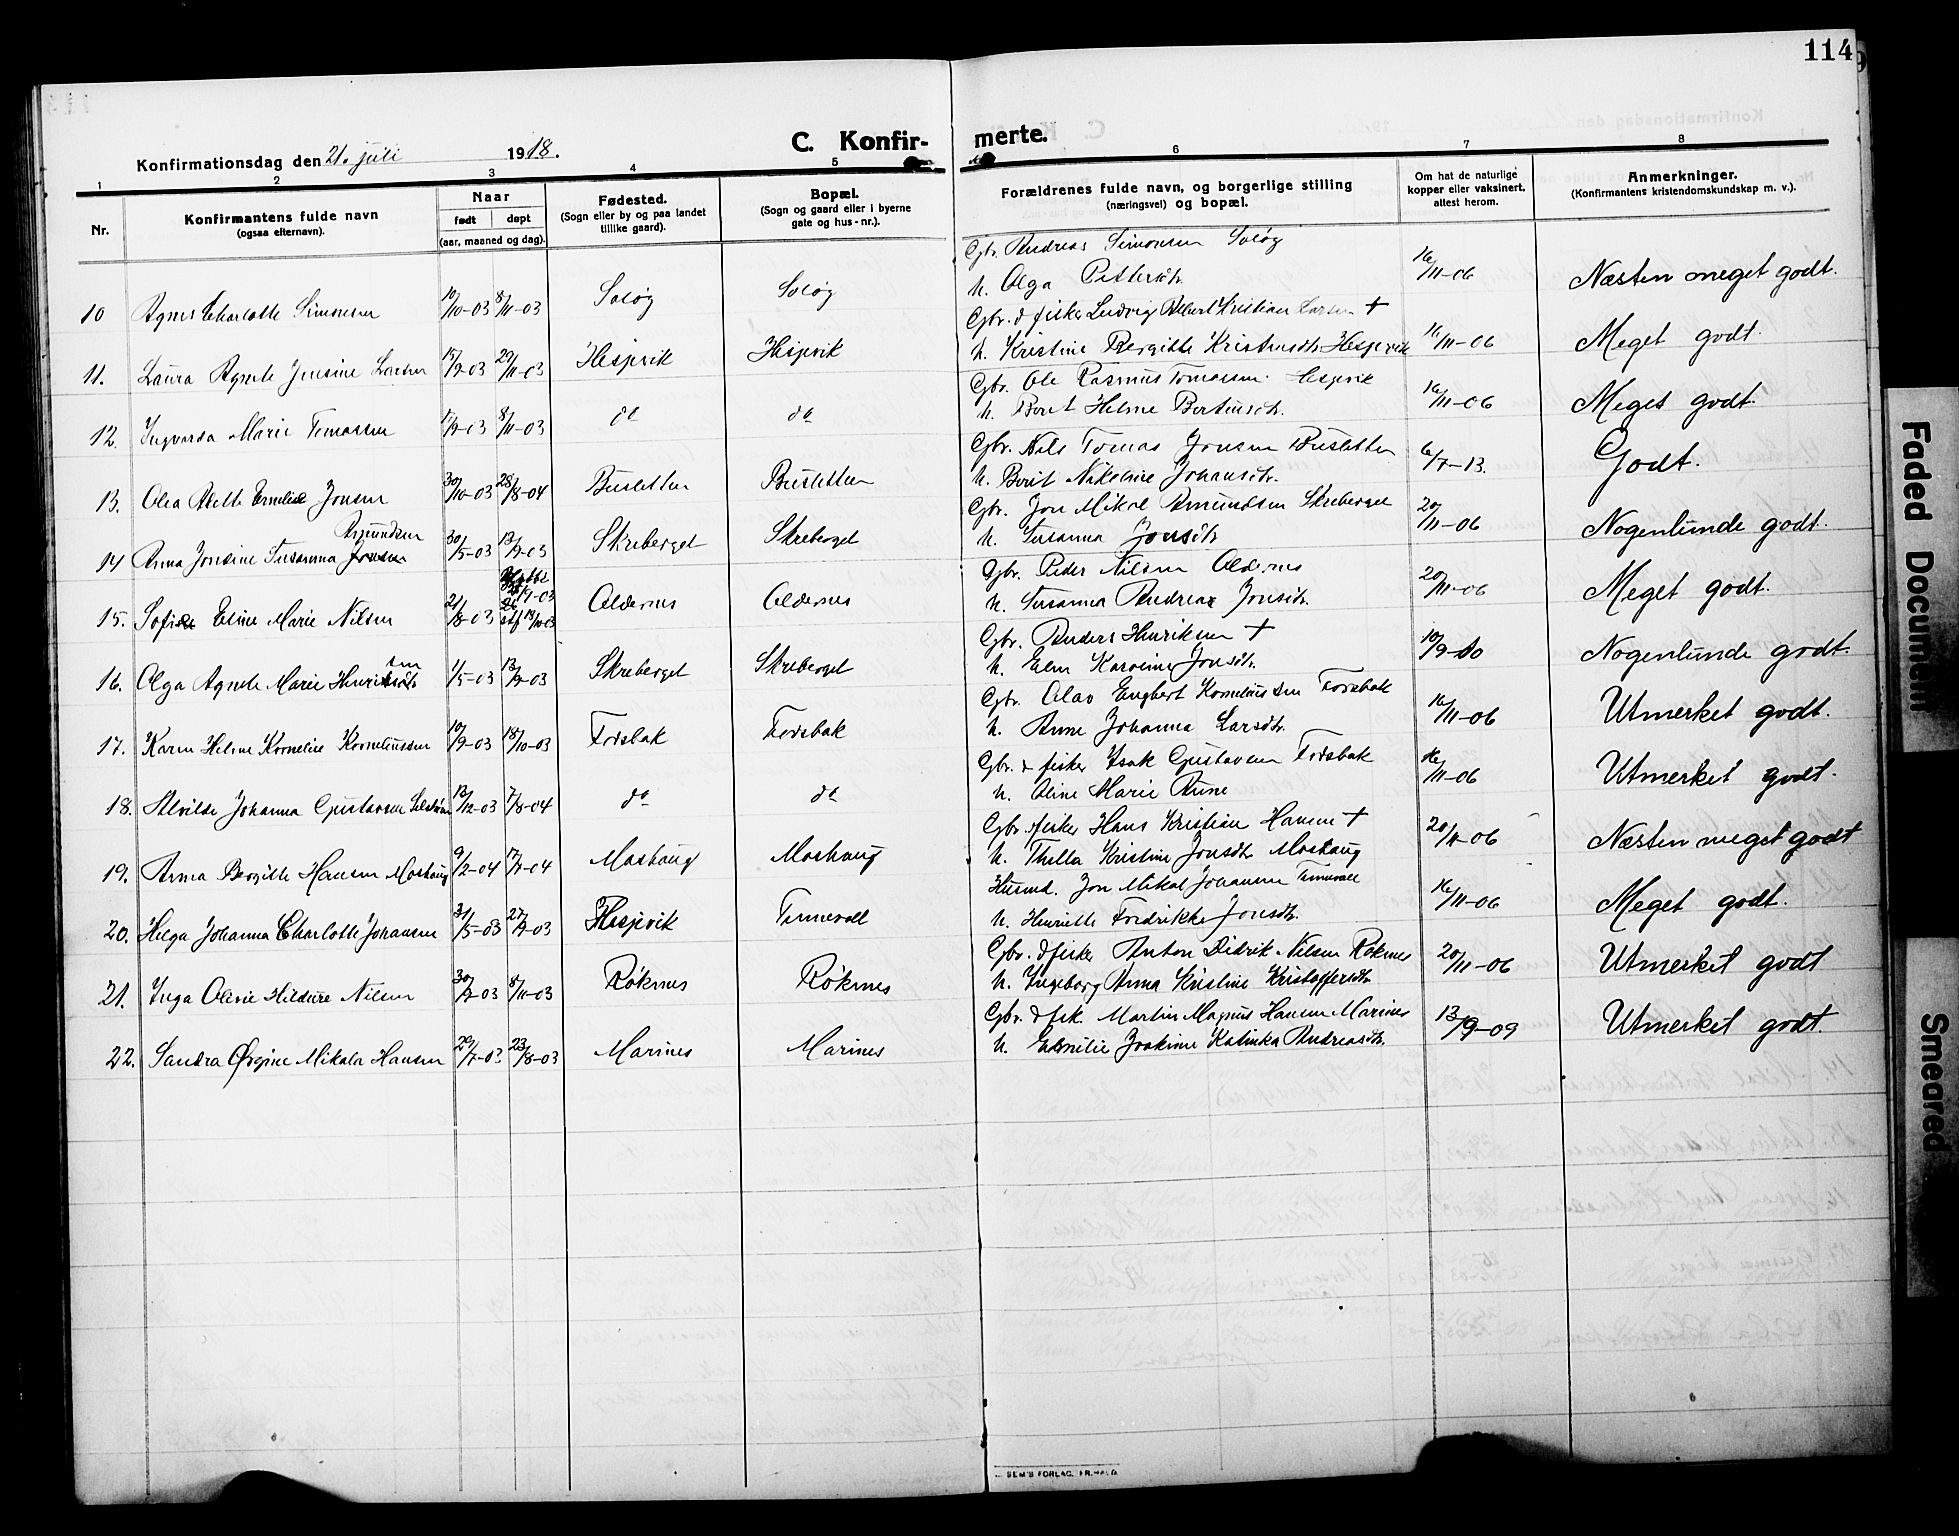 114
Konfirmationsdag den 21. juli 1918.
C. Konfirmerte.
1 2 3 4 5 6 7 8
Nr.
Konfirmantens fulde navn
(ogsaa efternavn).
Naar
født døpt
(aar, maaned og dag).
Fødested.
(Sogn eller by og paa landet
tillike gaard).
Bopæl.
(Sogn og gaard eller i byerne
gate og hus-nr.).
Forældrenes fulde navn, og borgerlige stilling
(næringsvei) og bopæl.
Om hat de naturlige
kopper eller vaksinert,
attest herom.
Anmerkninger.
(Konfirmantens kristendomskundskap m. v.).
Gbr. Andreas Simonsen Soløy
10 Agnes Charlotte Simonsen 10/10-03 8/11-03 Soløy Soløy h. Olga Pettersdtr. 16/11-06 Næsten meget godt.
Gbr. & fisker Ludvig Albert Kristian Larsen +
11. Laura Agnete Jensine Larsen 15/9-03 29/11-03 Hesjevik Hesjevik h. Kristine Bergitte Hesjevik 16/11-06 Meget godt.
Gbr. Ole Rasmus Tomassen Hesjevik
12. Ingvarda Marie Tomassen 8/11-03 do do h. Berit Helene 16/11-06 Meget godt.
Gbr. Nils Tomas Jonsen Busletten
13. Olea Anette Emelie Jonsen 30/10-03 28/8-04 Busletten Busletten h. Berit Nikoline Johansdtr. 6/7-13. Godt.
Gbr. Jon Mikal Amundsen Skreberget
Amundsen
14 Anna Jonsine Susanna Jonsen 30/5-03 Skreberget Skreberget h. Susanna Jonsdtr 20/11-06 Nogenlunde godt.
Gbr. Peder Nilsen Aldernes
15. Sofie Esine Marie Nilsen 21/8-03 Aldernes Aldernes h. Susanna Andrea Jonsdtr. 20/11-06 Meget godt.
Gbr. Anders Henriksen +
16. Olga Agnete Marie Henriksen 1/5-03 Skreberget Skreberget h. Elen Karoline Jonsdtr. 10/9-10 Nogenlunde godt.
Gbr. Olav Engbert Korneliussen Forsbak
17. Karen Helene Kornelie Korneliussen 10/9-03 18/10-03 Forsbak Forsbak h. Anne Johanna Larsdtr. 16/11-06 Utmerket godt.
Gbr. & fisker Isak Gustavsen Forsbak
18. Alvilde Johanna Gustavsen 13/12-03 7/8-04 do do h. Oline Marie Rune 16/11-06 Utmerket godt.
Gbr. & fisker Hans Kristian Hansen +
19. Anna Bergitte Hansen Moshaug 9/2-04 Moshaug Moshaug h. Thella Kristine Jonsdtr Moshaug 20/11-06 Næsten meget godt
Husmd. Jon Mikal Johansen Tennevoll
20. Helga Johanna Charlotte Johansen 31/5-03 Hesjevik Tennevoll h. Henriette Fredrikke Jonsdtr. 16/11-06 Meget godt.
Gbr. & fisker Anton Didrik Nilsen Røknes
21. Inga Olevie Hildure Nilsen 8/11-03 Røknes Røknes h. Ingeborg Anna Kristine Kristoffersdtr 20/11-06 Utmerket godt
Gbr. & fisk. Martin Magnus Hansen Marines
22. Sandra Ørgine Mikala Hansen 29/7-03 23/8-03 Marines Marines h. Emelie Joakime Katinka Andreasdtr. 13/9-09 Utmerket godt.
SEM'S FORLAG, FR.HALD
Faded Document
Smeared